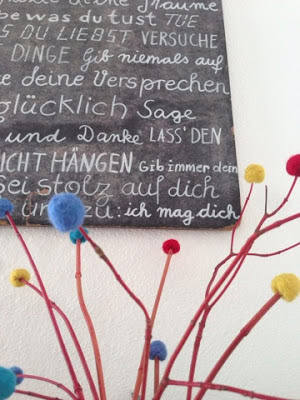 deine Träume
be was du tust TUE
S DU LIEBST VERSUCHE
DINGE Gib niemals auf
te deine Versprechen
glücklich Sage
und Danke LASS' DEN
ICHT HÄNGEN Gib immer dein
Sei stolz auf dich
zu: ich mag dich